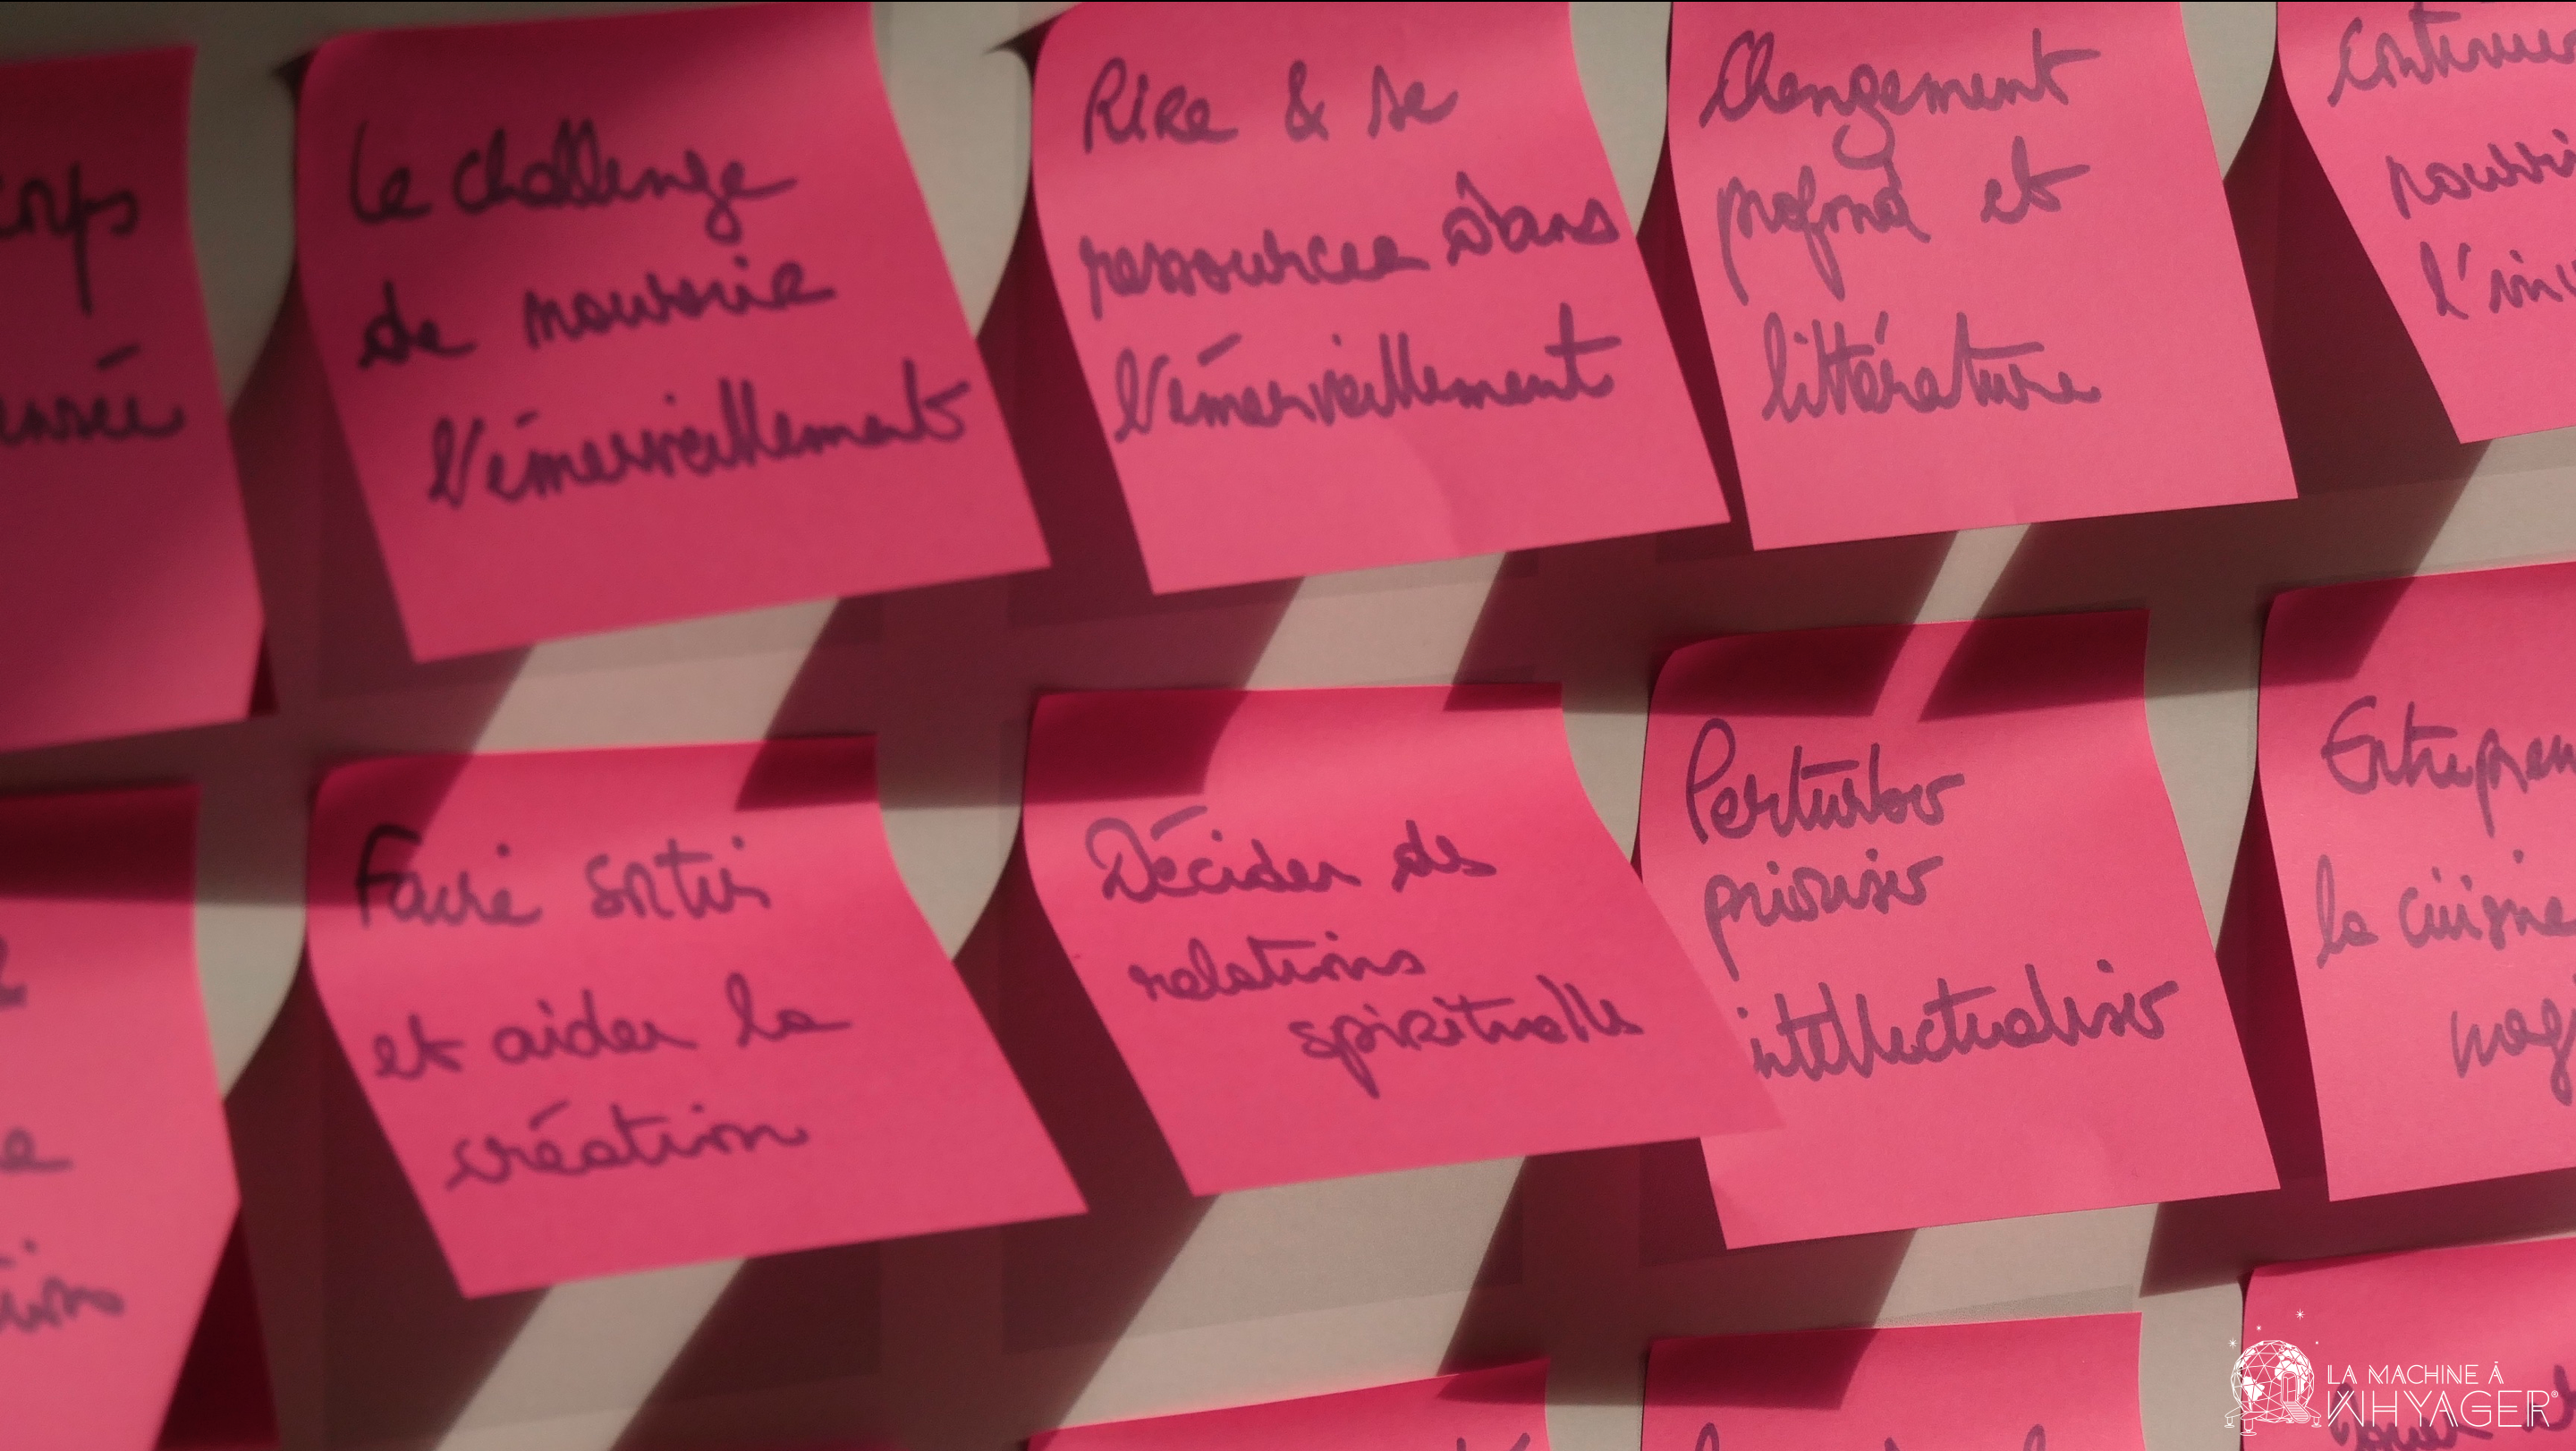 Le challenge
de nourrir
l'émerveillement
Rire & se
ressourcer dans
l'émerveillement
Changement
profond et
littérature
l'in
Faire sortir
et aider la
création
Décider des
relations
spirituelles
Perturber
prioriser
intellectualiser
Entrepren
la cuisine
mag
LA MACHINE À
WHYAGER®